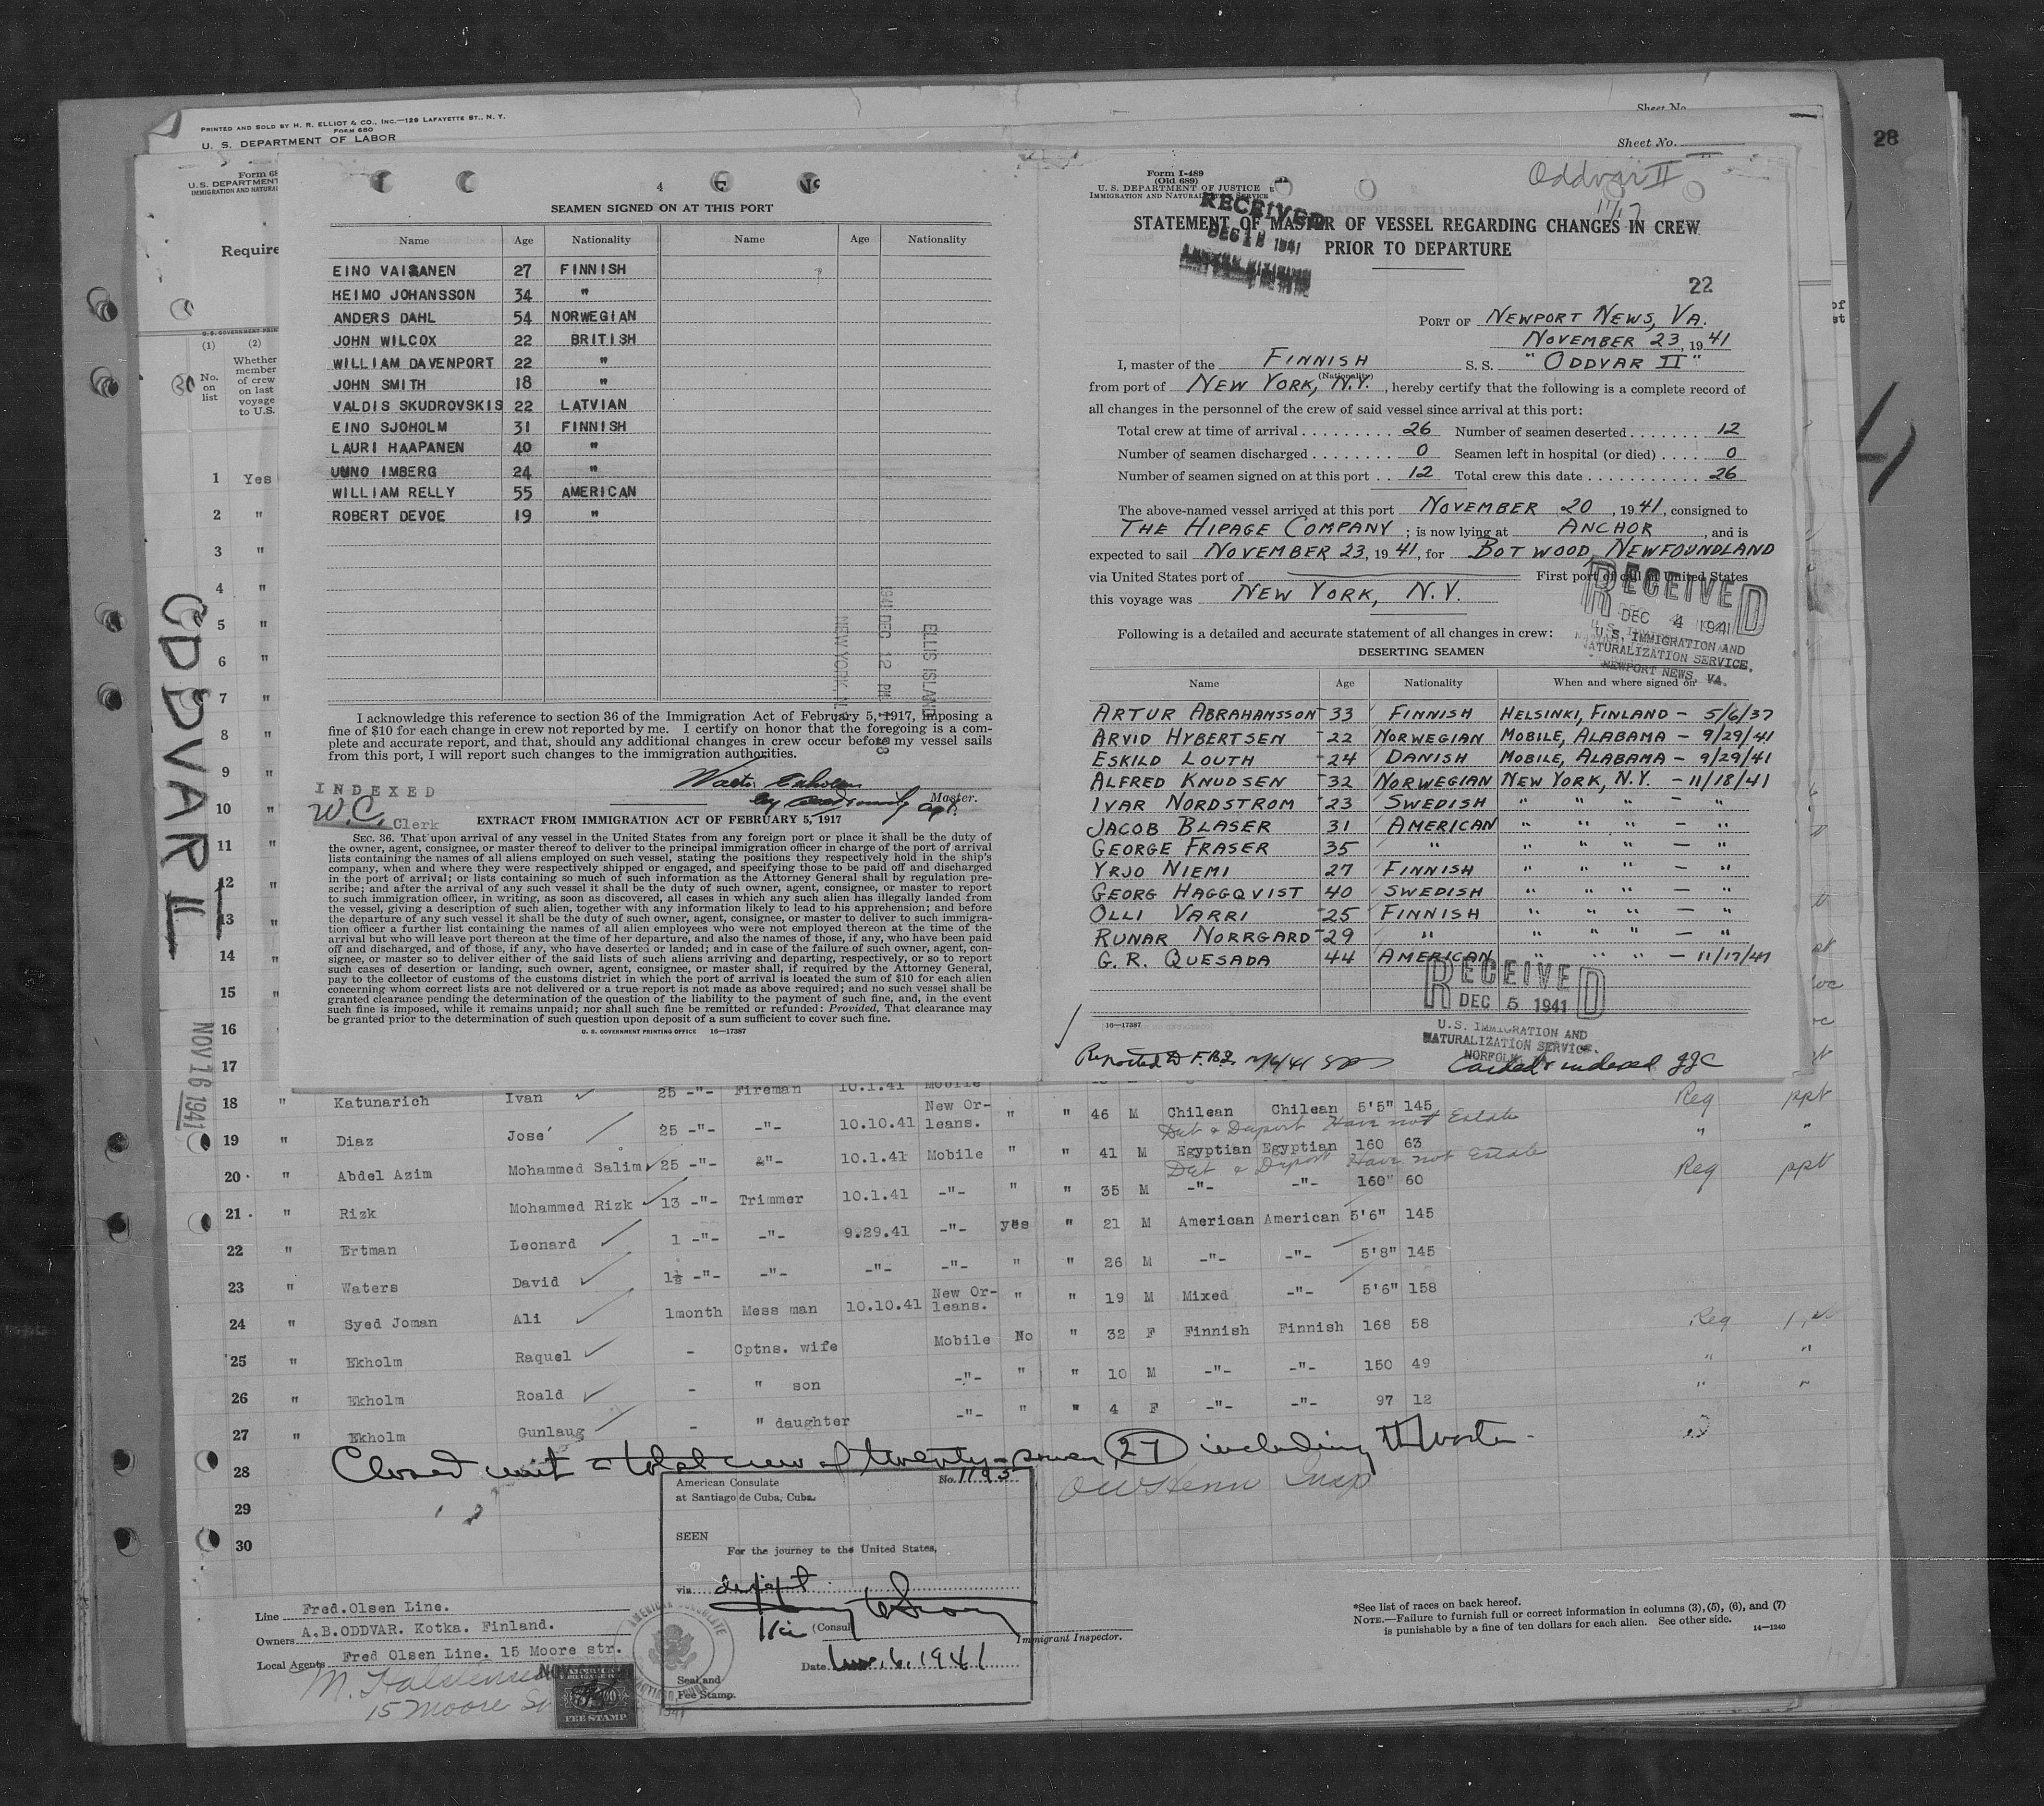 PRINTED AND SOLD BY H. R. ELLIOT & CO., INC.—129 LAFAYETTE ST., N. Y.
FORM 680
U. S. DEPARTMENT OF LABOR
Sheet No.
Sheet No.
28
Form 68
U. S. DEPARTMENT
IMMIGRATION AND NATURAL
Require
(1) (2)
No. on list
Whether member of crew on last voyage to U.S.
ODDVAR II
NOV 16 1941
4
SEAMEN SIGNED ON AT THIS PORT
Name Age Nationality Name Age Nationality
EINO VAISANEN 27 FINNISH
HEIMO JOHANSSON 34 "
ANDERS DAHL 54 NORWEGIAN
JOHN WILCOX 22 BRITISH
WILLIAM DAVENPORT 22 "
JOHN SMITH 18 "
VALDIS SKUDROVSKIS 22 LATVIAN
EINO SJOHOLM 31 FINNISH
LAURI HAAPANEN 40 "
UNNO IMBERG 24 "
WILLIAM RELLY 55 AMERICAN
ROBERT DEVOE 19 "
1941 DEC 12 PM
ELLIS ISLAND
NEW YORK, N.
I acknowledge this reference to section 36 of the Immigration Act of February 5, 1917, imposing a
fine of $10 for each change in crew not reported by me. I certify on honor that the foregoing is a com-
plete and accurate report, and that, should any additional changes in crew occur before my vessel sails
from this port, I will report such changes to the immigration authorities.
Master.
INDEXED
W.C. Clerk
EXTRACT FROM IMMIGRATION ACT OF FEBRUARY 5, 1917
SEC. 36. That upon arrival of any vessel in the United States from any foreign port or place it shall be the duty of
the owner, agent, consignee, or master thereof to deliver to the principal immigration officer in charge of the port of arrival
lists containing the names of all aliens employed on such vessel, stating the positions they respectively hold in the ship's
company, when and where they were respectively shipped or engaged, and specifying those to be paid off and discharged
in the port of arrival; or lists containing so much of such information as the Attorney General shall by regulation pre-
scribe; and after the arrival of any such vessel it shall be the duty of such owner, agent, consignee, or master to report
to such immigration officer, in writing, as soon as discovered, all cases in which any such alien has illegally landed from
the vessel, giving a description of such alien, together with any information likely to lead to his apprehension; and before
the departure of any such vessel it shall be the duty of such owner, agent, consignee, or master to deliver to such immigra-
tion officer a further list containing the names of all alien employees who were not employed thereon at the time of the
arrival but who will leave port thereon at the time of her departure, and also the names of those, if any, who have been paid
off and discharged, and of those, if any, who have deserted or landed; and in case of the failure of such owner, agent, con-
signee, or master so to deliver either of the said lists of such aliens arriving and departing, respectively, or so to report
such cases of desertion or landing, such owner, agent, consignee, or master shall, if required by the Attorney General,
pay to the collector of customs of the customs district in which the port of arrival is located the sum of $10 for each alien
concerning whom correct lists are not delivered or a true report is not made as above required; and no such vessel shall be
granted clearance pending the determination of the question of the liability to the payment of such fine, and, in the event
such fine is imposed, while it remains unpaid; nor shall such fine be remitted or refunded: Provided, That clearance may
be granted prior to the determination of such question upon deposit of a sum sufficient to cover such fine.
U. S. GOVERNMENT PRINTING OFFICE 16—17387
Form I-489
(Old 689)
U. S. DEPARTMENT OF JUSTICE
IMMIGRATION AND NATURALIZATION SERVICE
Oddvar II
11/17
RECEIVED
DEC 18 1941
STATEMENT OF MASTER OF VESSEL REGARDING CHANGES IN CREW
PRIOR TO DEPARTURE
22
PORT OF NEWPORT NEWS, VA.
NOVEMBER 23, 1941
I, master of the FINNISH S. S. "ODDVAR II"
(Nationality)
from port of NEW YORK, N.Y., hereby certify that the following is a complete record of
all changes in the personnel of the crew of said vessel since arrival at this port:
Total crew at time of arrival 26 Number of seamen deserted 12
Number of seamen discharged 0 Seamen left in hospital (or died) 0
Number of seamen signed on at this port 12 Total crew this date 26
The above-named vessel arrived at this port NOVEMBER 20, 1941, consigned to
THE HIPAGE COMPANY; is now lying at ANCHOR, and is
expected to sail NOVEMBER 23, 1941, for BOTWOOD, NEWFOUNDLAND
via United States port of First port of call in United States
this voyage was NEW YORK, N.Y.
RECEIVED
DEC 4 1941
U. S. IMMIGRATION AND
NATURALIZATION SERVICE.
NEWPORT NEWS, VA.
Following is a detailed and accurate statement of all changes in crew:
DESERTING SEAMEN
Name Age Nationality When and where signed on
ARTUR ABRAHANSSON 33 FINNISH HELSINKI, FINLAND – 5/6/37
ARVID HYBERTSEN 22 NORWEGIAN MOBILE, ALABAMA – 9/29/41
ESKILD LOUTH 24 DANISH MOBILE, ALABAMA – 9/29/41
ALFRED KNUDSEN 32 NORWEGIAN NEW YORK, N.Y. – 11/18/41
IVAR NORDSTROM 23 SWEDISH " " " – "
JACOB BLASER 31 AMERICAN " " " – "
GEORGE FRASER 35 " " " " – "
YRJO NIEMI 27 FINNISH " " " – "
GEORG HAGGQVIST 40 SWEDISH " " " – "
OLLI VARRI 25 FINNISH " " " – "
RUNAR NORRGARD 29 " " " " – "
G. R. QUESADA 44 AMERICAN " " " – 11/17/41
RECEIVED
DEC 5 1941
U.S. IMMIGRATION AND
NATURALIZATION SERVICE.
NORFOLK
16—17387
Carded & indexed JJC
1 Yes
2 "
3 "
4 "
5 "
6 "
7 "
8 "
9 "
10 "
11 "
12 "
13 "
14 "
15 "
16
17
18 " Katunarich Ivan 25 -"- Fireman 10.1.41 Mobile
19 " Diaz José 25 -"- -"- 10.10.41 New Orleans. " " 46 M Chilean Chilean 5'5" 145 Reg ppt
20 " Abdel Azim Mohammed Salim 25 -"- -"- 10.1.41 Mobile " " 41 M Egyptian Egyptian 160 63 " "
21 " Rizk Mohammed Rizk 13 -"- Trimmer 10.1.41 -"- " " 35 M -"- -"- 160 60 Reg ppt
22 " Ertman Leonard 1 -"- -"- 9.29.41 -"- yes " 21 M American American 5'6" 145
23 " Waters David 1½ -"- -"- -"- -"- " " 26 M -"- -"- 5'8" 145
24 " Syed Joman Ali 1month Mess man 10.10.41 New Orleans. " " 19 M Mixed -"- 5'6" 158
25 " Ekholm Raquel - Cptns. wife Mobile No " 32 F Finnish Finnish 168 58 Reg
26 " Ekholm Roald - " son -"- " " 10 M -"- -"- 150 49 " "
27 " Ekholm Gunlaug - " daughter -"- " " 4 F -"- -"- 97 12 " "
28
Closed with a total crew of twenty-seven (27) including Master
29
30
American Consulate No. 1193
at Santiago de Cuba, Cuba.
SEEN
For the journey to the United States,
via
(Consul
Date Nov. 6, 1941
Seal and
Fee Stamp.
AMERICAN CONSULATE
FEE STAMP
Immigrant Inspector.
Line Fred.Olsen Line.
Owners A.B.ODDVAR. Kotka. Finland.
Local Agents Fred Olsen Line. 15 Moore str.
15 Moore St
*See list of races on back hereof.
NOTE.—Failure to furnish full or correct information in columns (3), (5), (6), and (7)
is punishable by a fine of ten dollars for each alien. See other side.
14—1240